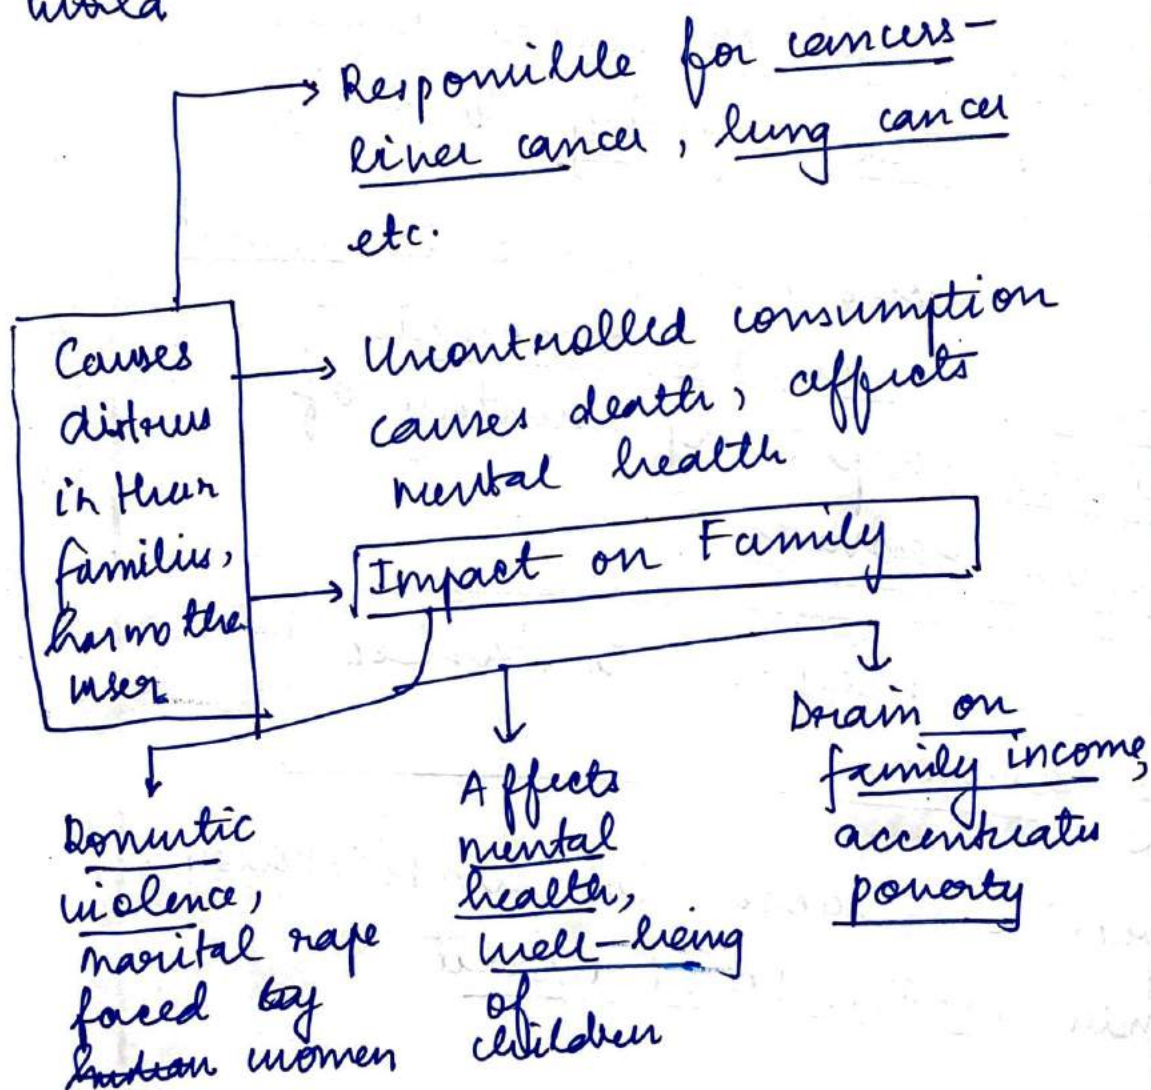 world
Responsible for cancers-
liver cancer, lung cancer
etc.
Causes
distress
in their
families,
harms the
user
Uncontrolled consumption
causes death, affects
mental health
Impact on Family
Domestic
violence,
marital rape
faced by
women
Affects
mental
health,
well-being
of
children
Drain on
family income,
accentuates
poverty